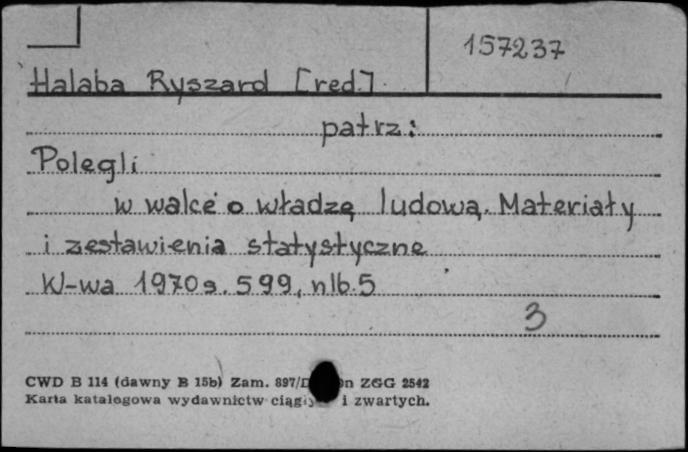 157237
Halaba Ryszard [red.]
patrz:
Polegli
w walce o władzę ludową. Materiały
i zestawienia statystyczne
W-wa 1970 s. 599, nlb. 5
3
CWD B 114 (dawny B 15b) Zam. ZGG 2542
Karta katalogowa wydawnictw i zwartych.